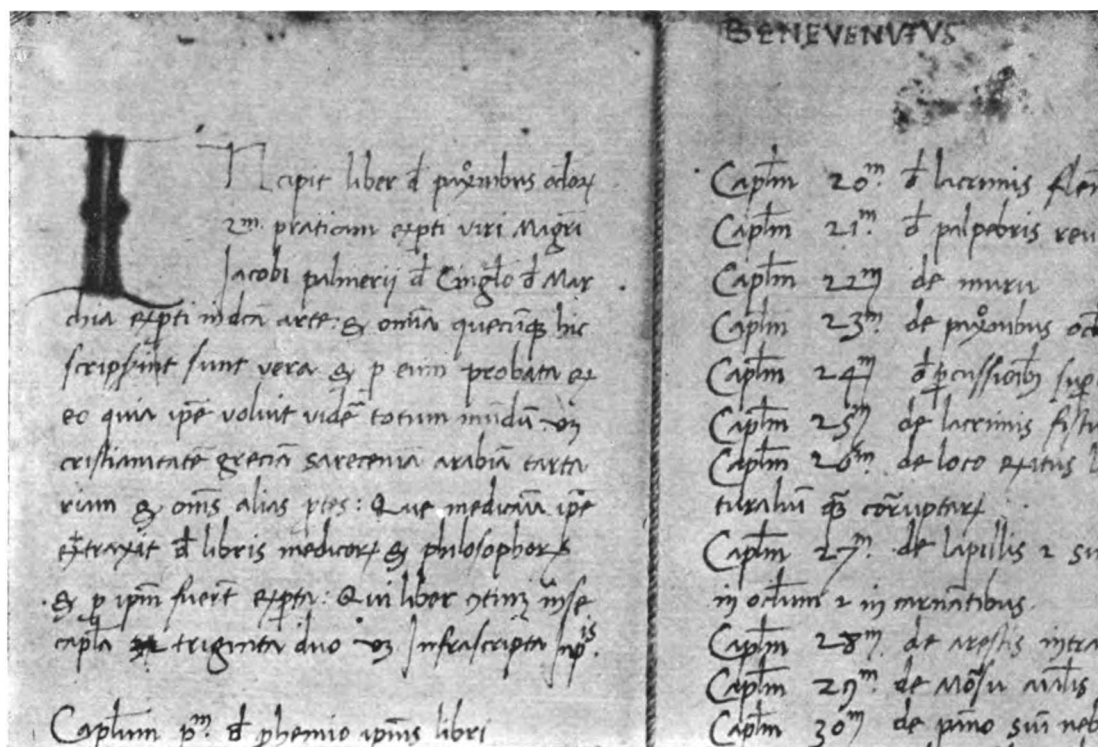 INcipit liber d̄ paxōnibus oclorꝝ
2m. praticam exp̱ti viri Magr̄i
Jacobi palmerii d̄ Cinglo d̄ Mar
chia exp̱ti in dcā arte: & om̄ia quecūqꝫ hic
scripssint sunt vera & p eum probata ex
eo quia ip̄e voluit videre totum mūdū
cristianitatē greciā saraceniā arabiā tarta
riam & om̄s alias ptes: Que medicaīa ip̄e
extraxit d̄ libris medicorꝝ & philosophorꝝ
& p ipm̄ fuer̄t exp̱ta: Qui liber ꝯtinꝫ in se
capl̄a triginta duo Infrascripta
Caplūm pm d̄ phemio ip̄ius libri
BENEVENUTUS
Capl̄m 20m. d̄ lacrimis
Capl̄m 21m. d̄ palpebris
Capl̄m 22m de muru
Capl̄m 23m. de paxōnibus
Capl̄m 24m d̄ ꝑcussioibꝫ
Capl̄m 25m de lacrimis
Capl̄m 26m. de loco exitus
turaliū qꝫ corruptarꝝ
Capl̄m 27m. de lapillis 2
in oclum 2 in carnātibus.
Capl̄m 28m. de arestis
Capl̄m 29m. de morsu
Capl̄m 30m de pāno